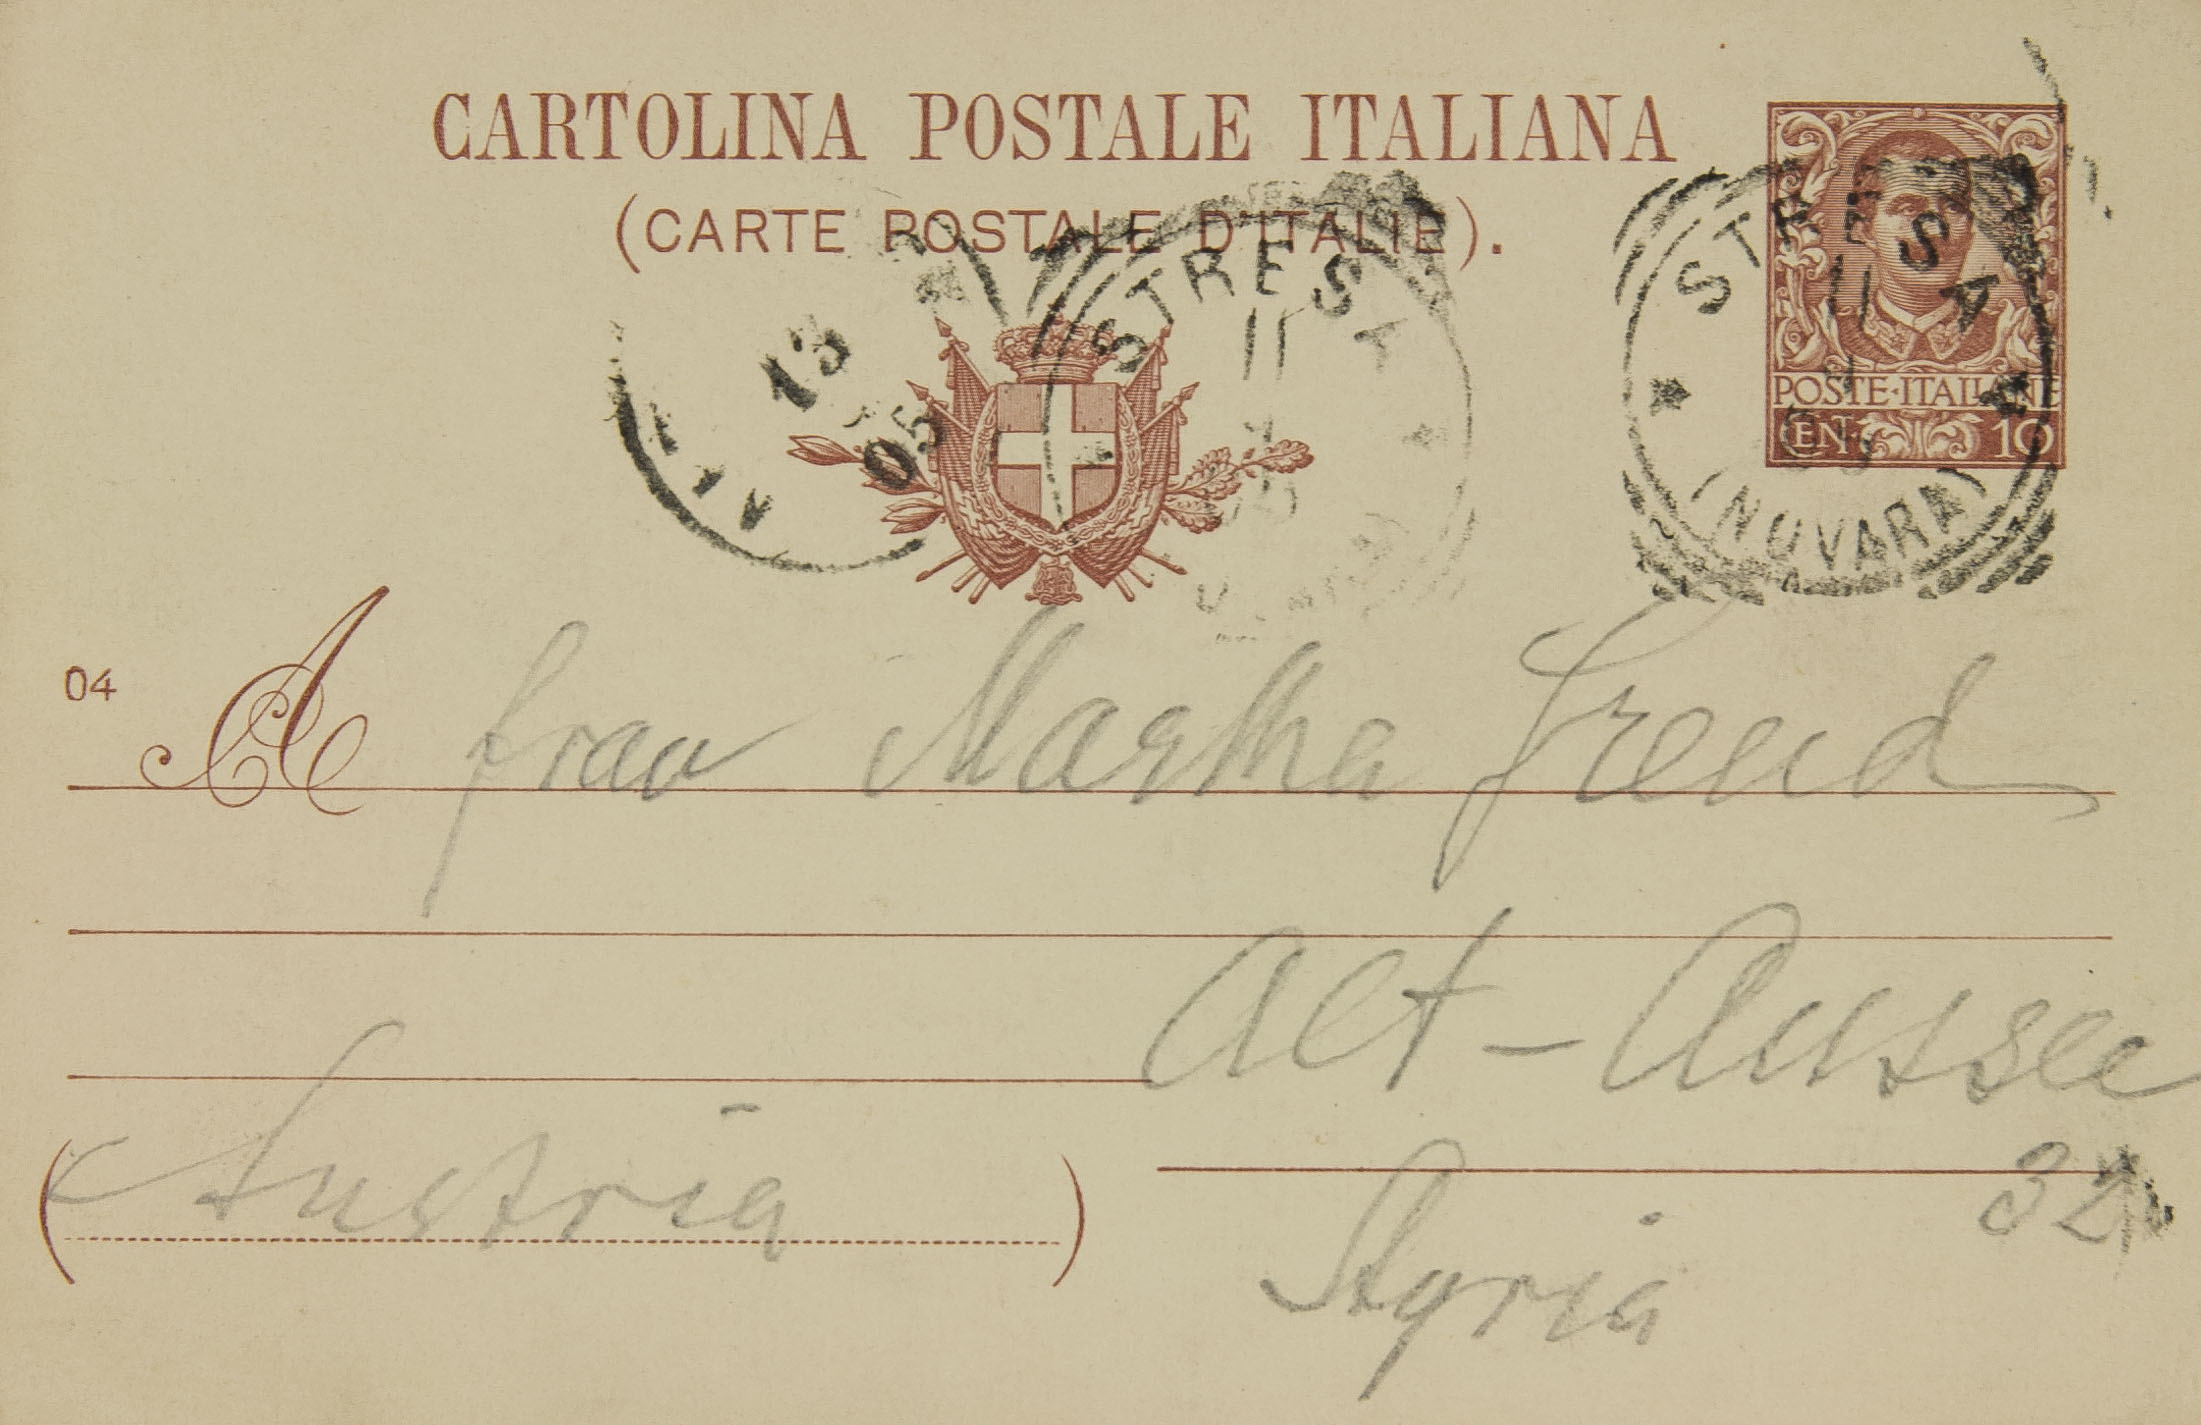 CARTOLINA POSTALE ITALIANA
(CARTE POSTALE D'ITALIE).
STRESA
11
(NOVARA)
POSTE·ITALIANE
CENT. 10
STRESA
11
13
05
04
A frau Martha Freud
Alt-Aussee
32
(Austria)
Styria